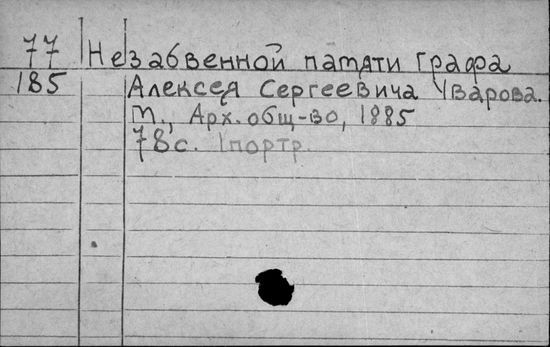 77 Незабвенной памяти Графа
185 Алексея Сергеевича Уварова.
М., Арх. общ-во, 1885
78с. 1портр.